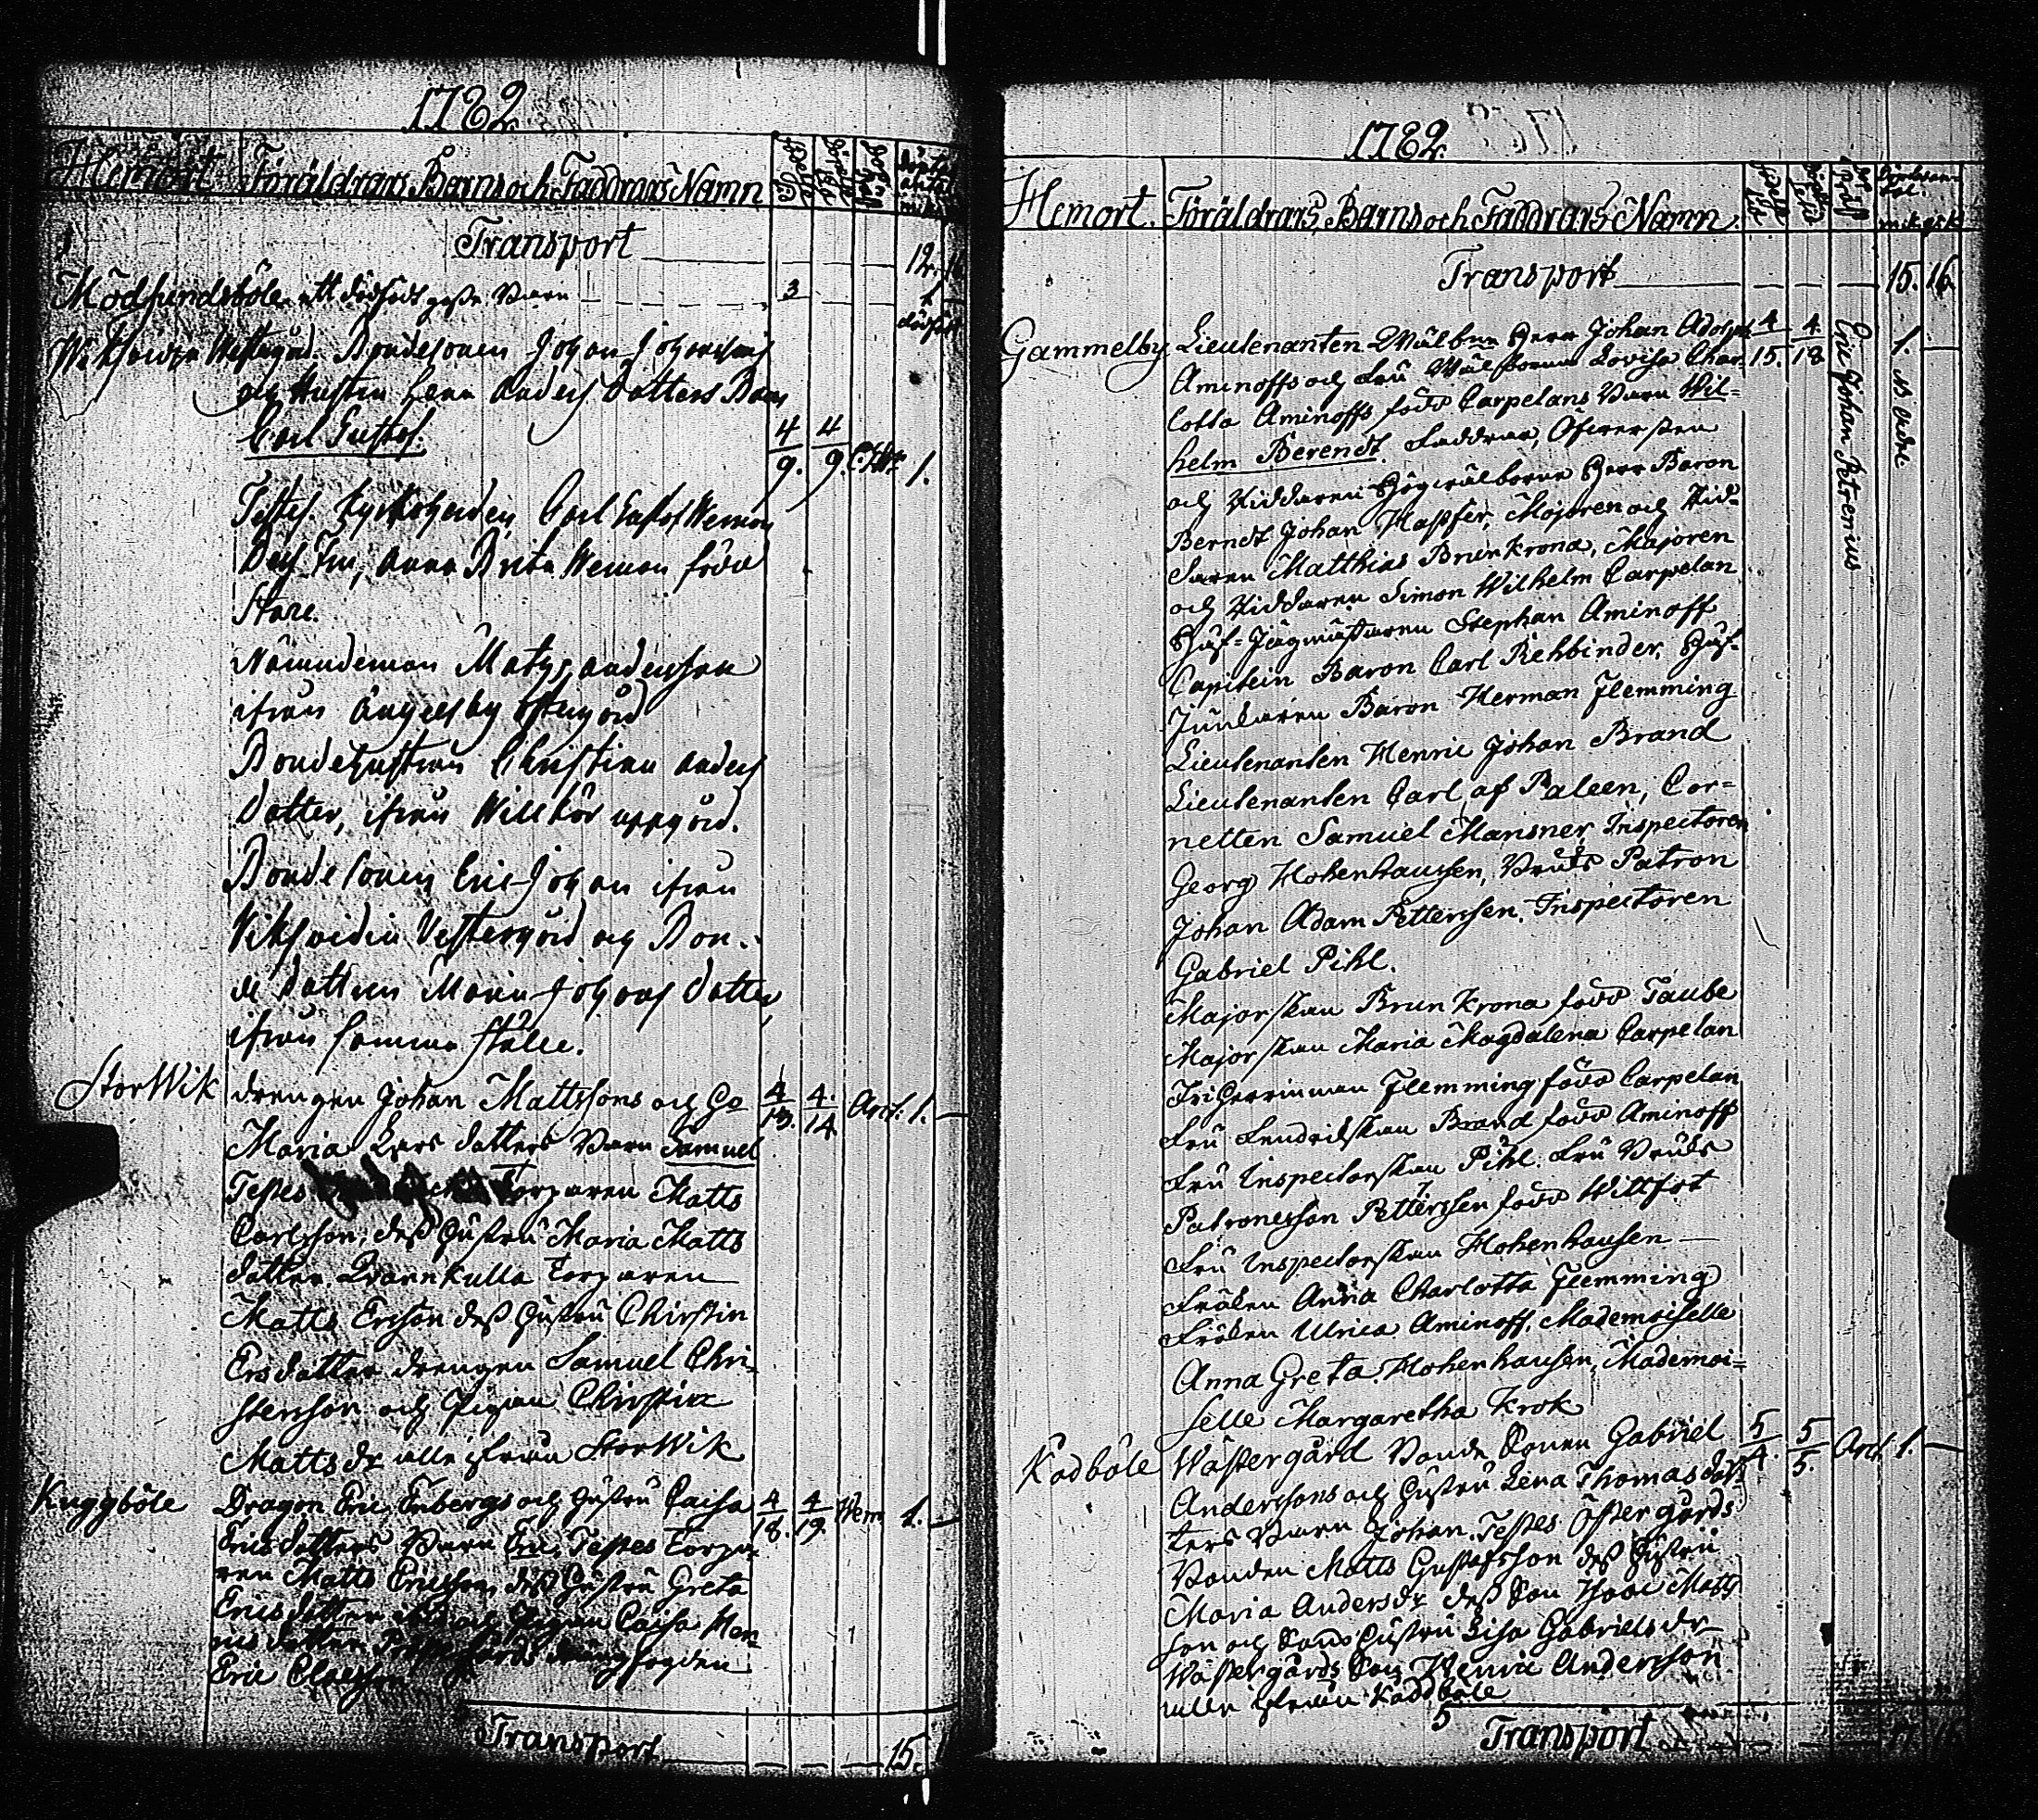 1782
Hemort Föräldrars Barns och Faddrars Namn
Transport 12.
Mödsundsböle ett dödfödt gosse Barn 3 1
dödfödt
Westergård. Bondesonen Johan Johanssons
och Hustru Lena Anders Dotters Barn
Carl Gustof. 4/9. 4/9. 1.
Testes. Kyrkoherden, Carl Gustof Weman
Dess Fru, Anna Brita Weman född
Stare.
Nämndeman Matts Andersson
ifrån Ängelsby Östergård
Bondehustrun Christina Anders
Dotter, ifrån Uppgård.
Bondesonen Eric Johan ifrån
Vestergård och Bon-
de Dottren Maria Johans Dotter,
ifrån samma ställe.
StorWik drengen Johan Mattssons och
Maria Lars dotters Barn Samuel 4/13. 4/14. Arct: 1. —
Testes Torparen Matts
Carlsson, dess Hustru Maria Matts
dotter. Qvarnkulla Torparen
Matts Ersson dess Hustru Chirstin
Ersdotter drengen Samuel Chri-
stersson och Pigan Chirstin
Matts dr alle ifrån StorWik
Kuggböle Dragon Eric Enbergs och Hustru Caisa 4/18. 4/19. Wem 1. —
Erics dotters Barn Eric. Testes Torpa-
ren Matts Ericsson, dess Hustru Greta
Erics dotter och Pigan Caisa Hen-
rics dotter fogden
Eric Claesson
Transport 15.
1782.
Hemort. Föräldrars, Barns och Faddrars Namn.
Transport 15. 16.
Gammelby Lieutenanten Wälborne Herr Johan Adolph 4/15. 4/18 Eric Johan Petrenius 1. —
Aminoffs och Fru Wälborna Lovisa Char-
lotta Aminoffs född Carpelans Barn Wil-
helm Berendt. Faddrar, Öfwersten
och Riddaren Högwälborne Herr Baron
Berndt Johan Hastfer, Majoren och Rid-
daren Matthias Brunkrona, Majoren
och Riddaren Simon Wilhelm Carpelan
Hof-Jägmästaren Stephan Aminoff
Capitein Baron Carl Rehbinder, Hof-
Junkaren Baron Herman Flemming
Lieutenanten Henric Johan Brand
Lieutenanten Carl af Paleen, Cor-
netten Samuel Mansner, Inspectoren
Georg Hohenhausen, Bruks Patron
Johan Adam Petterssen, Inspectoren
Gabriel Pihl.
Majorskan Brunkrona född Taube
Majorskan Maria Magdalena Carpelan
Friherrinnan Flemming född Carpelan
Fru Brand född Aminoff
Fru Inspectorskan Pihl. Fru Bruks
Patronesson Petterssen född Wittfot
Fru Inspectorskan Hohenhausen —
Fröken Anna Charlotta Flemming
Fröken Ulrica Aminoff, Mademoiselle
Anna Greta Hohenhausen, Mademoi-
selle Margaretha Krok
Kadböle Wästergård Bonde Sonen Gabriel 5/4. 5/5. Arct. 1. —
Anderssons och Hustru Lena Thomas dot-
ters Barn Johan. Testes Östergårds
Bonden Matts Gustafsson dess Hustru
Maria Anders dr dess Son Isaac Matts
son och Sons Hustru Lisa Gabriels dr
Wästergårds Son Henric Andersson
alle ifrån Kaddböle
5
Transport